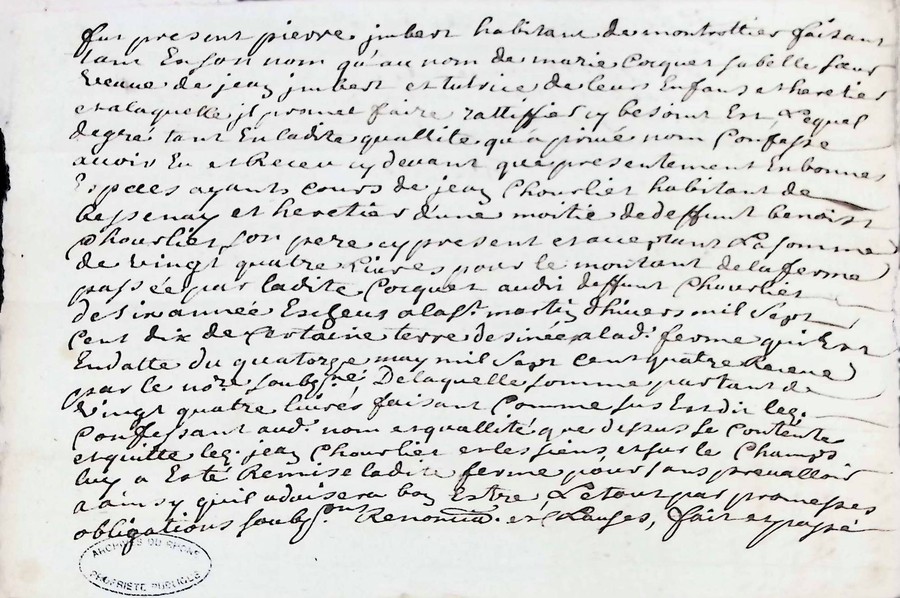 fut present pierre jmbert habitant de montrottier faisant
tant En son nom qu'au nom de marie Cocquet sa belle sœur
Veuve de jean jmbert et tutrice de leurs Enfans et heretiers
et a laquelle jl promet faire rattiffier cy besoint Est Lequel
de gré tant En ladite quallite qu'a privé nom Confesse
avoir Eu et Receu cy devant que presentement En bonnes
Especes ayants cours de jean Chourlier habitant de
bessenay et heretier d'une moitie de deffunt benoist
Chourlier son pere cy present et acceptant La somme
de vingt quatre Livres pour le montant de la ferme
passée par ladite Cocquet audit deffunt Chourlier
de six année Escheus a la st martin d'hivers mil sept
Cent dix de Certaine terre desinée a lad. ferme qui Est
En datte du quatorze may mil sept cent quatre Receue
par le nore soubgné De laquelle somme partant de
vingt quatre livres faisant Comme sus Est dit leg.
Confessant aud. nom et quallité que dessus se Contente
et quitte leg. jean Chourlier et les siens, et sur le Champs
luy a Esté Remise ladite ferme pour s'ans prevalloir
a ainsy qu'il advisera bon Estre Le tout par promesses
obligations soub^ons Renonciaõn et Clauses, fait et passé
ARCHIVES DU RHONE
PROPRIETE PUBLIQUE